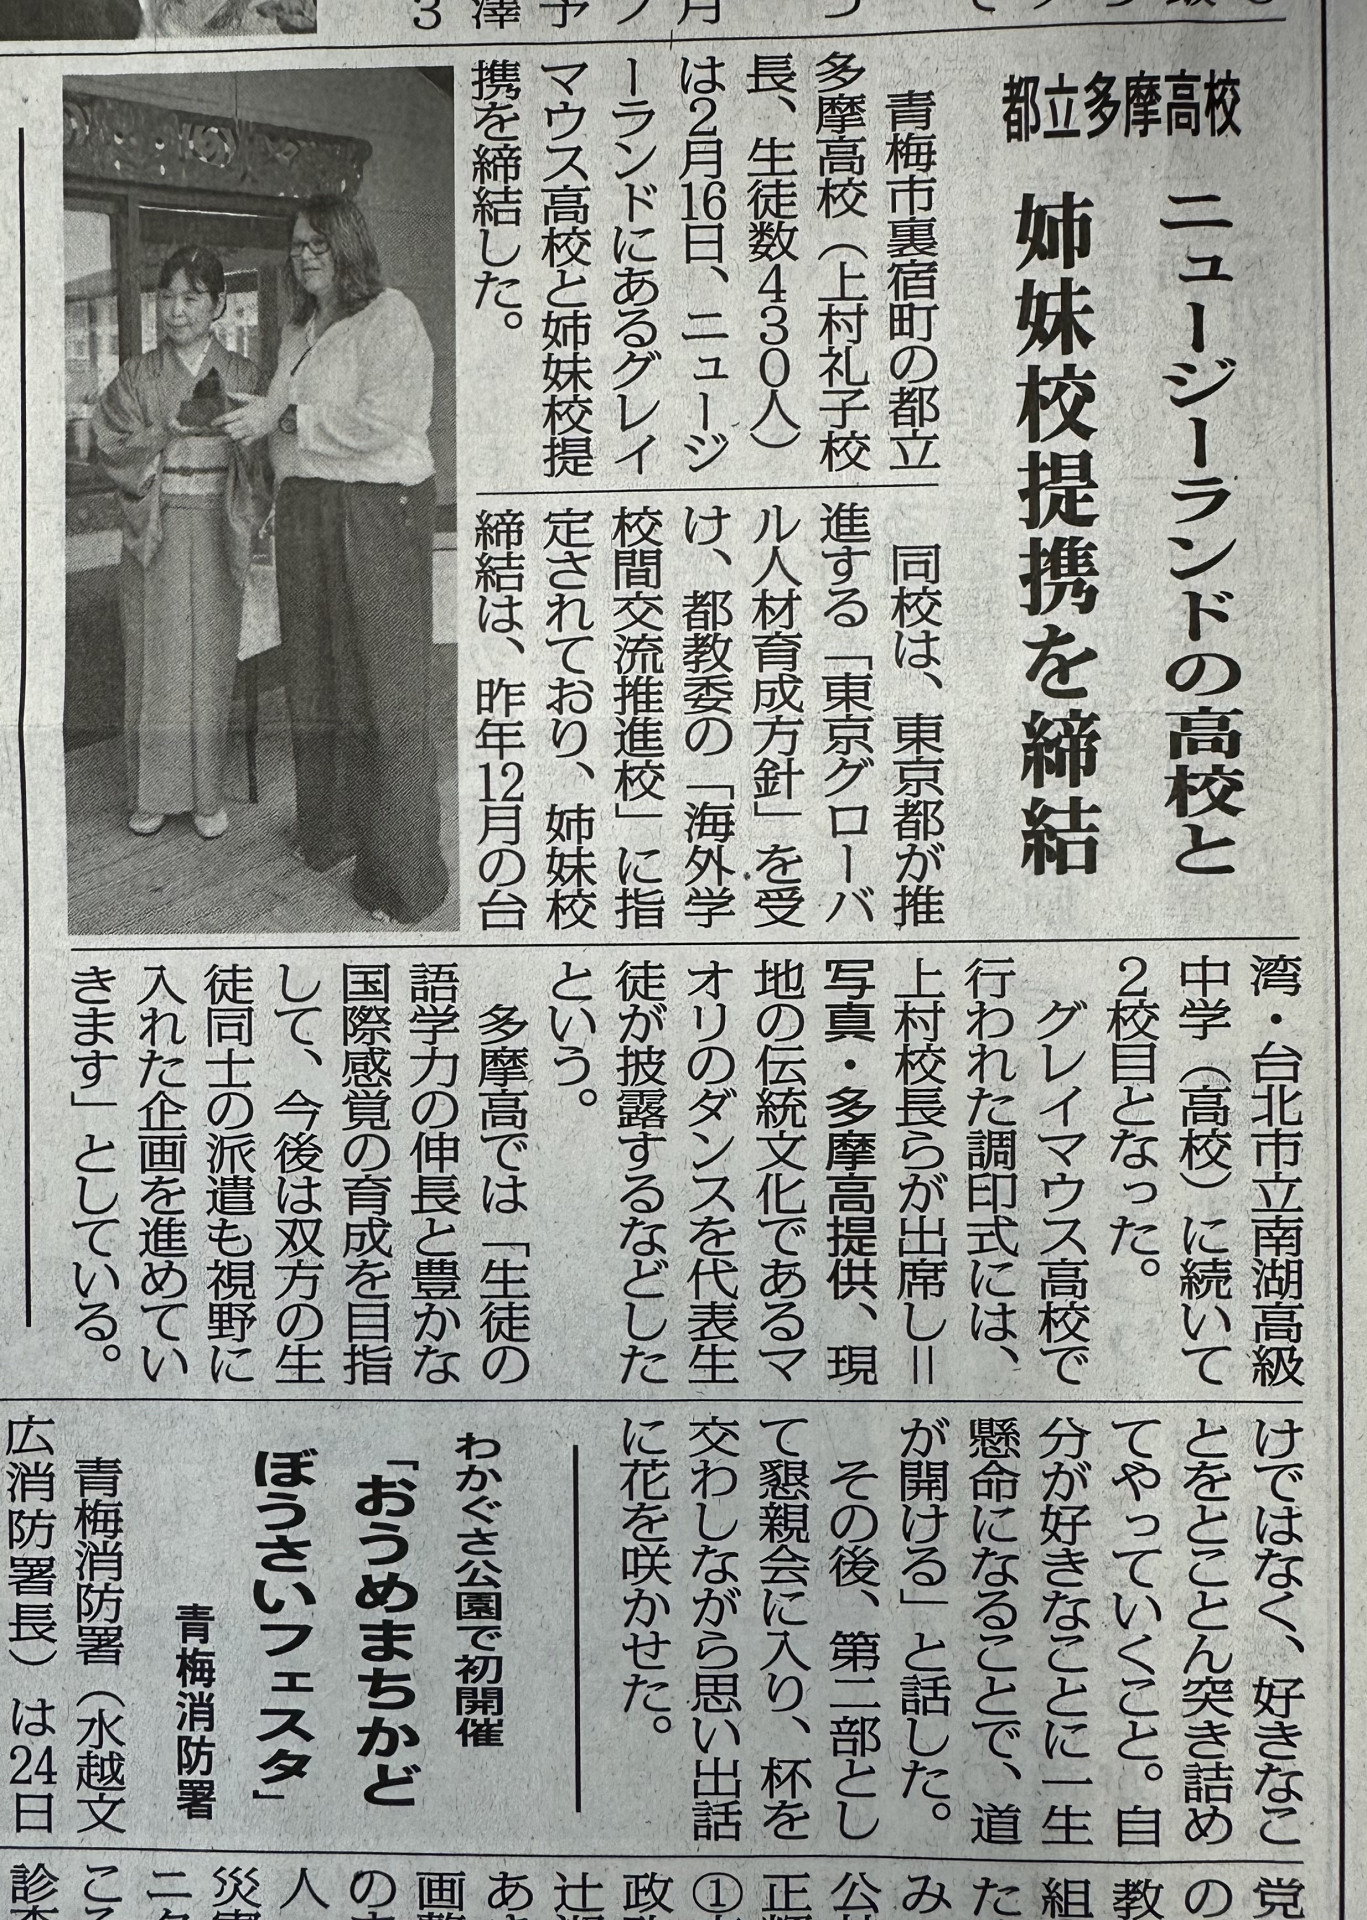 都立多摩高校
ニュージーランドの高校と
姉妹校提携を締結
青梅市裏宿町の都立
多摩高校（上村礼子校
長、生徒数４３０人）
は２月16日、ニュージ
ーランドにあるグレイ
マウス高校と姉妹校提
携を締結した。
同校は、東京都が推
進する「東京グローバ
ル人材育成方針」を受
け、都教委の「海外学
校間交流推進校」に指
定されており、姉妹校
締結は、昨年12月の台
湾・台北市立南湖高級
中学（高校）に続いて
２校目となった。
グレイマウス高校で
行われた調印式には、
上村校長らが出席し＝
写真・多摩高提供、現
地の伝統文化であるマ
オリのダンスを代表生
徒が披露するなどした
という。
多摩高では「生徒の
語学力の伸長と豊かな
国際感覚の育成を目指
して、今後は双方の生
徒同士の派遣も視野に
入れた企画を進めてい
きます」としている。
けではなく、好きなこ
とをとことん突き詰め
てやっていくこと。自
分が好きなことに一生
懸命になることで、道
が開ける」と話した。
その後、第二部とし
て懇親会に入り、杯を
交わしながら思い出話
に花を咲かせた。
わかぐさ公園で初開催
「おうめまちかど
ぼうさいフェスタ」
青梅消防署
青梅消防署（水越文
広消防署長）は24日
党
の
教
組
た
み
公
正
①
政
辻
あ
画
の
人
災
ニ
こ
診